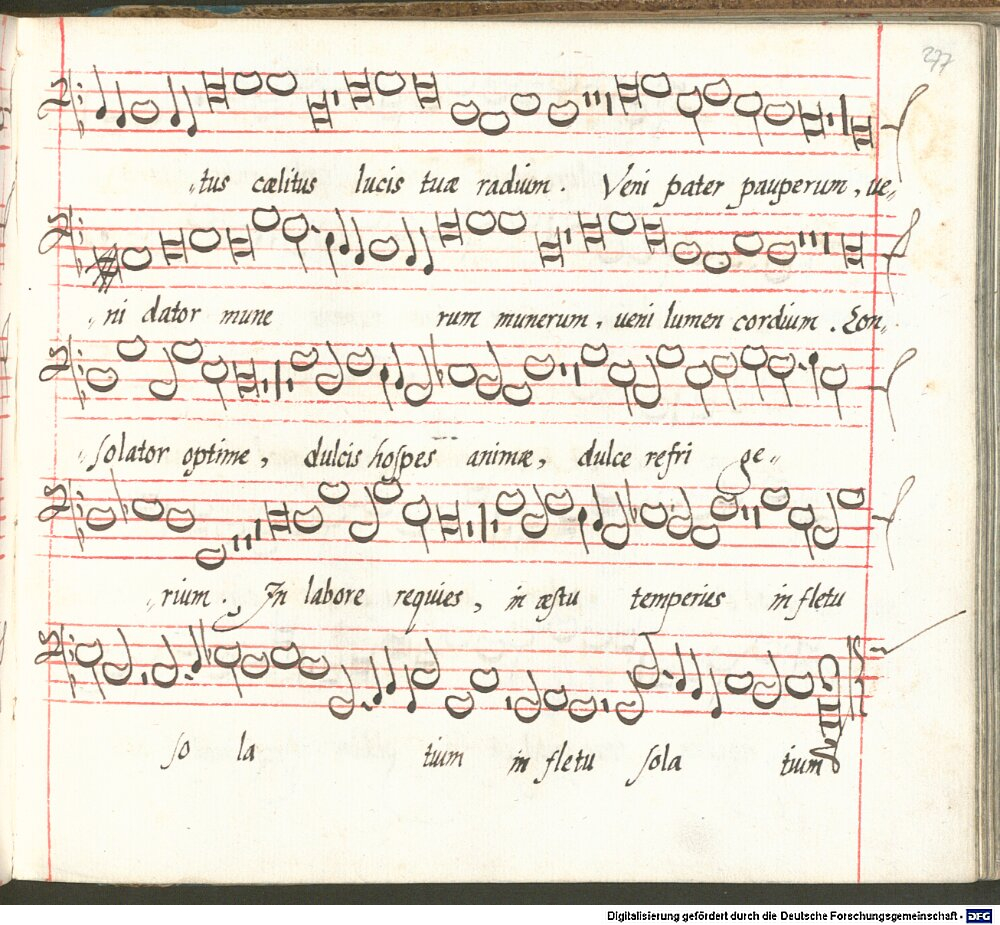 277
-tus cælitus lucis tuæ radium. Veni pater pauperum, ve-
-ni dator mune rum munerum, veni lumen cordium. Con-
-solator optime, dulcis hospes animæ, dulce refri ge-
-rium. In labore requies, in æstu temperies in fletu
so la tium in fletu sola tium
Digitalisierung gefördert durch die Deutsche Forschungsgemeinschaft - DFG